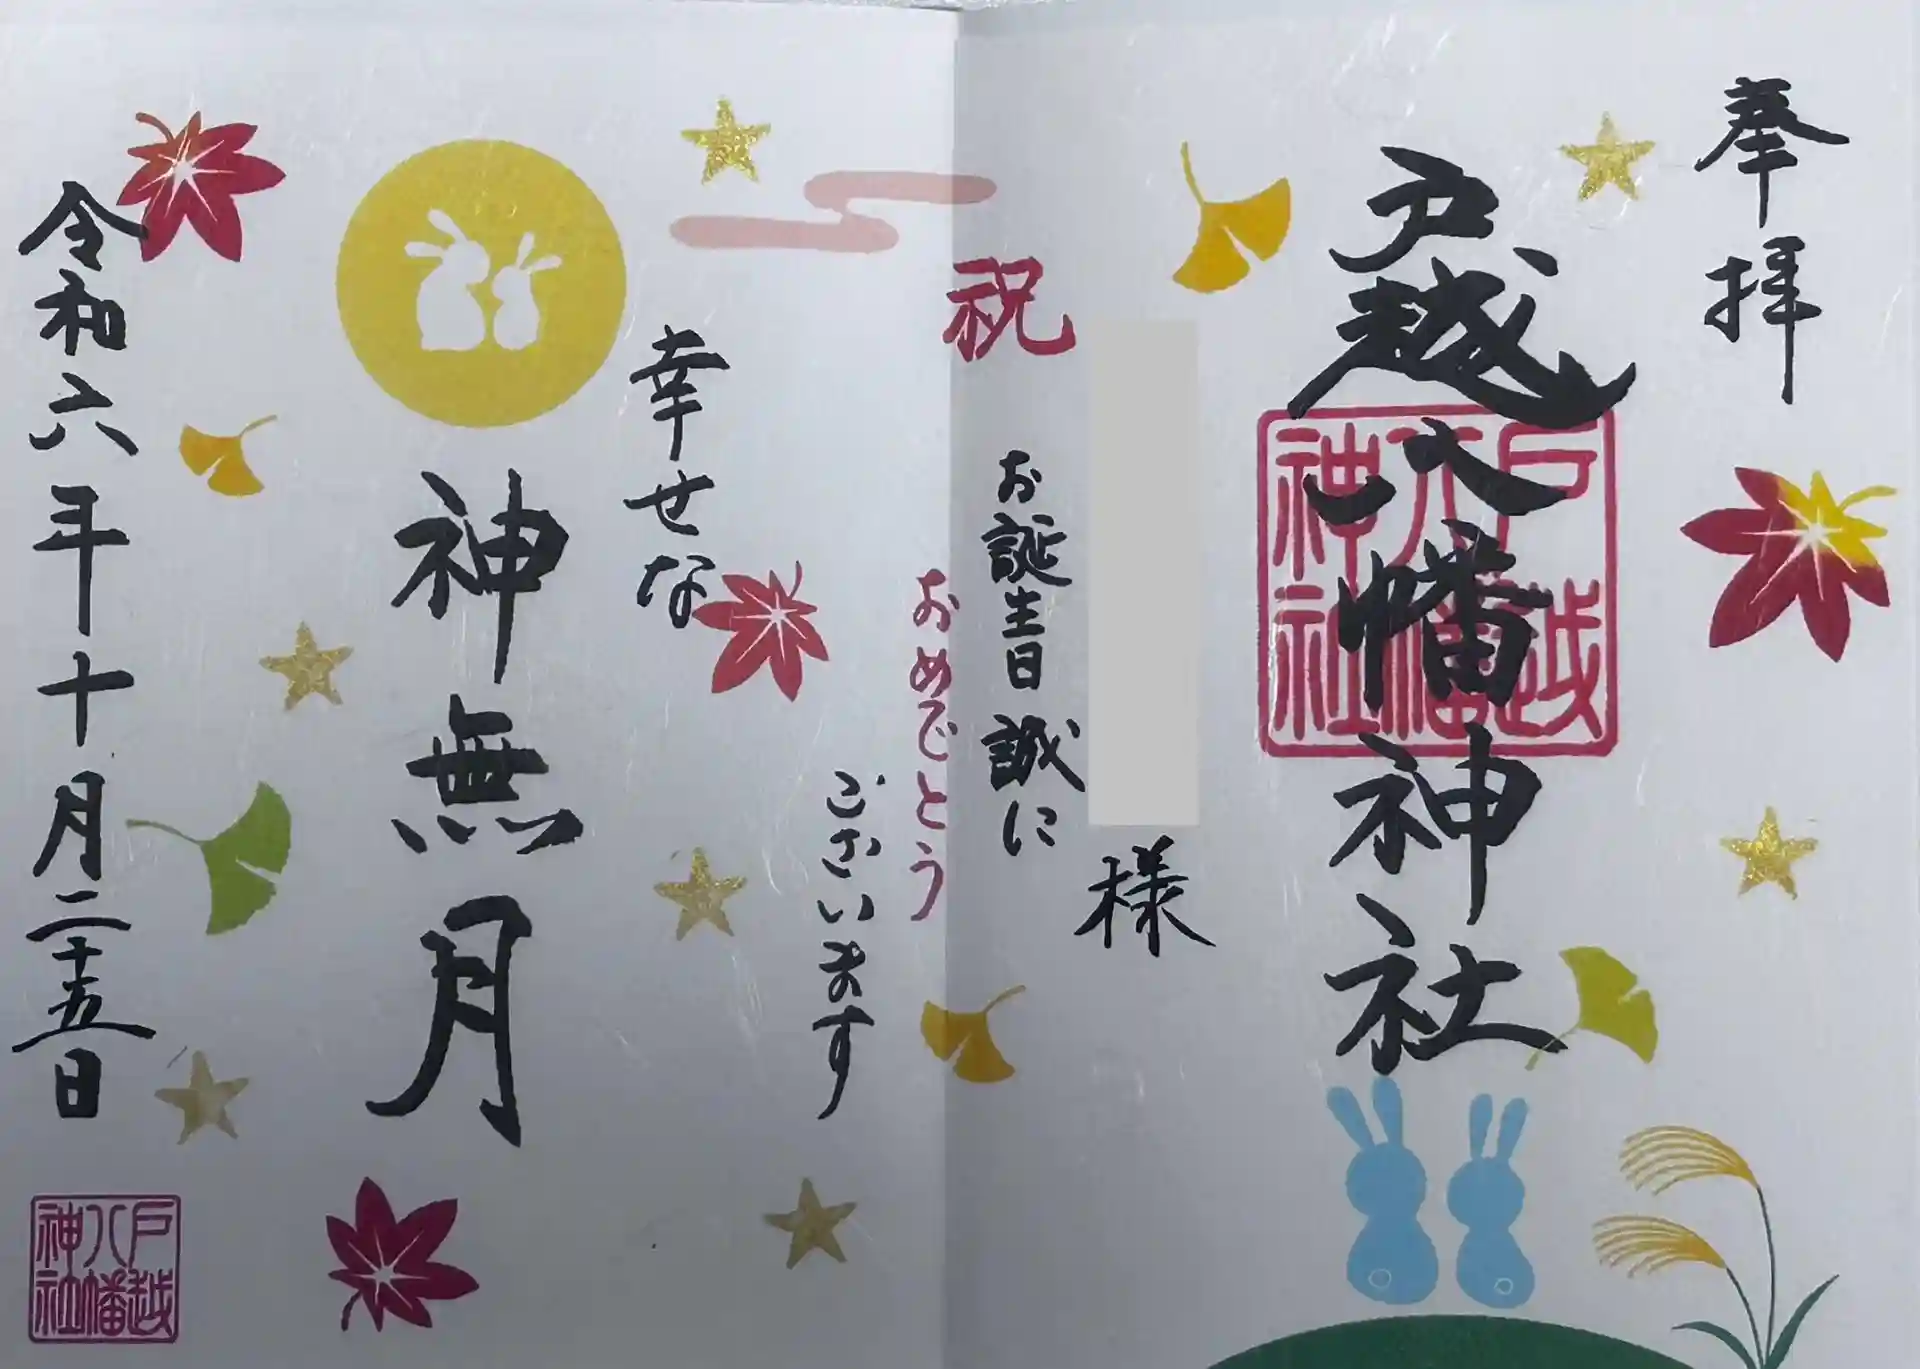 奉拝
戸越八幡神社
戸越
八幡
神社
様
祝
お誕生日 誠に
おめでとう
ございます
幸せな
神無月
令和六年十月二十五日
戸越
八幡
神社